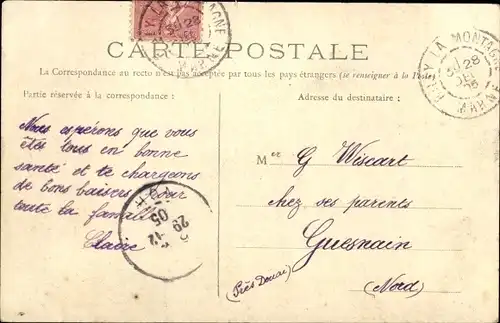 CARTE POSTALE
La Correspondance au recto n'est pas acceptée par tous les pays étrangers (se renseigner à la Poste)
Partie réservée à la correspondance :
Adresse du destinataire :
Nous espérons que vous
êtes tous en bonne
santé et te chargeons
de bons baisers pour
toute la famille
Claire
Mer G Wiscart
chez ses parents
Guesnain
(Près Douai)
(Nord)
LA MONTAGNE
28
MARNE
29 -12
05